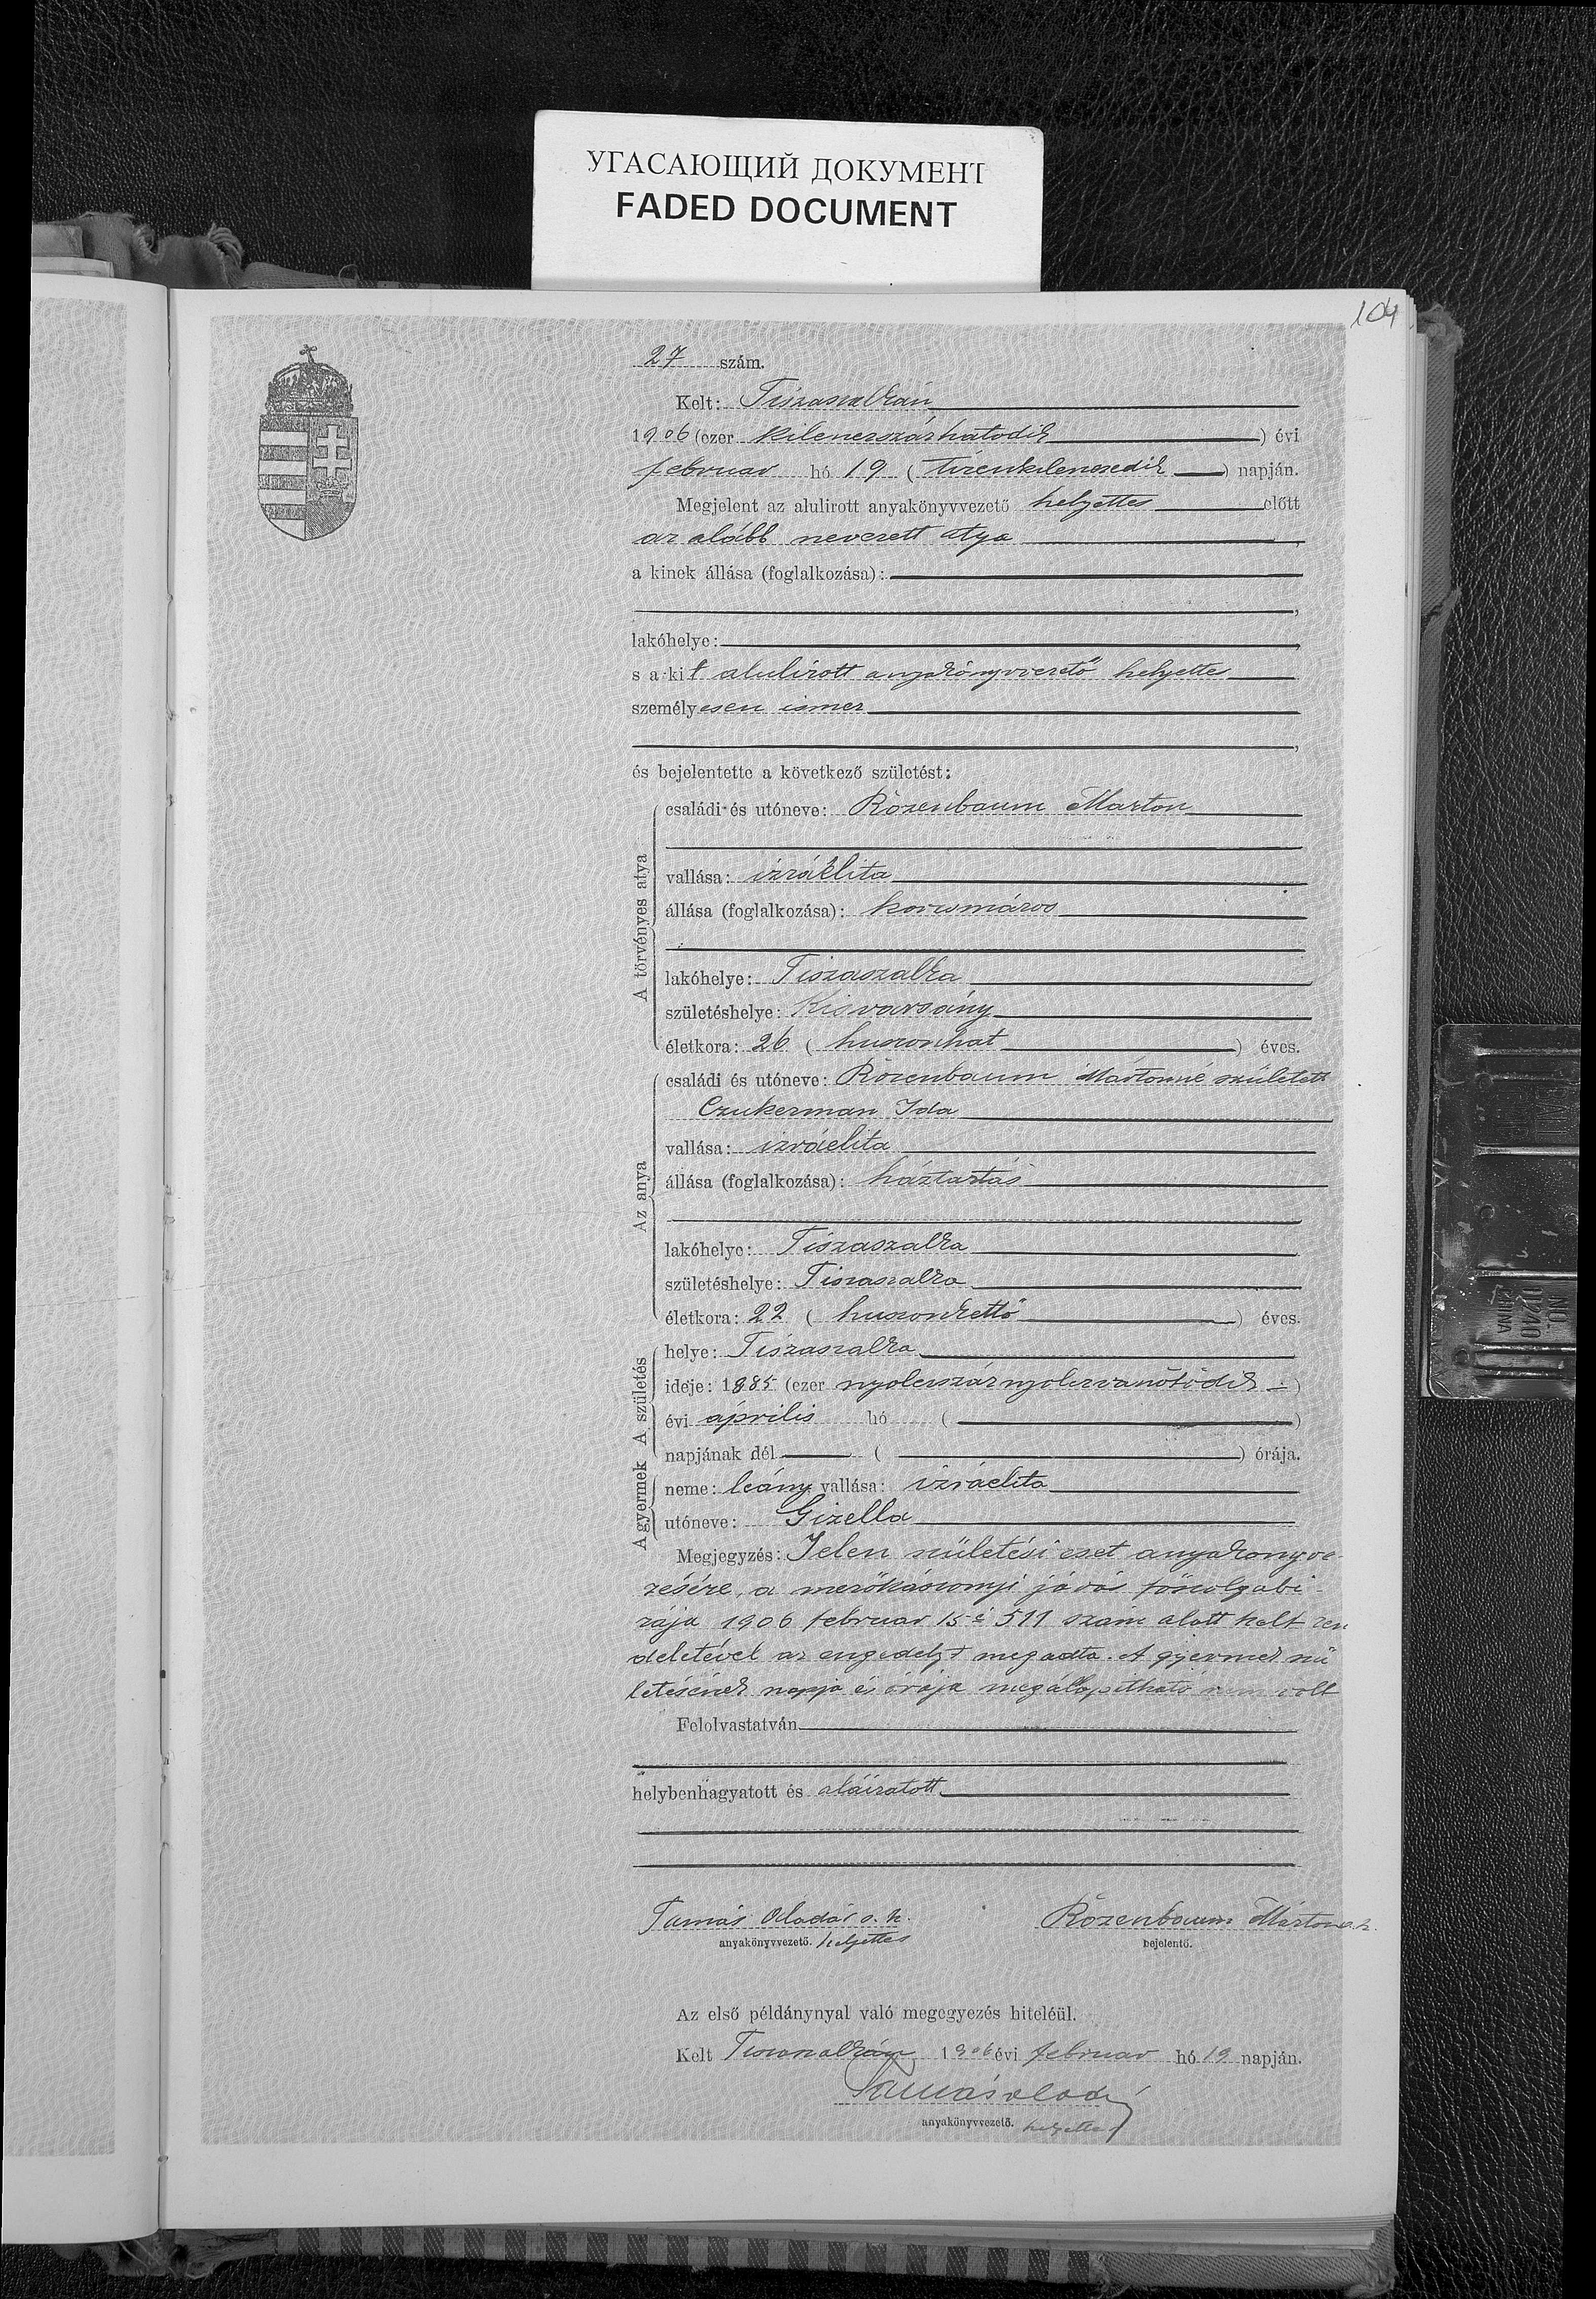 УГАСАЮЩИЙ ДОКУМЕНТ
FADED DOCUMENT
104
27 szám.
Kelt: Tiszaszalkán
1906 (ezer kilenczszázhatodik) évi
februar hó 19 (tizenkilenczedik) napján.
Megjelent az alulirott anyakönyvvezető helyettes előtt
az alább nevezett atya,
a kinek állása (foglalkozása):
lakóhelye:
s a kit alulirott anyakönyvvezető helyettes
személyesen ismer
és bejelentette a következő születést:
A törvényes atya
családi és utóneve: Rózenbaum Márton
vallása: izráelita
állása (foglalkozása): korcsmáros
lakóhelye: Tiszaszalka
születéshelye: Kisvarsány
életkora: 26 (huszonhat) éves.
Az anya
családi és utóneve: Rózenbaum Mártonné született
Czukerman Ida
vallása: izráelita
állása (foglalkozása): háztartás
lakóhelye: Tiszaszalka
születéshelye: Tiszaszalka
életkora: 22 (huszonkettő) éves.
A születés
helye: Tiszaszalka
ideje: 1885 (ezer nyolczszáznyolczvanötödik)
évi április hó ( )
napjának dél ( ) órája.
A gyermek
neme: leány vallása: izráelita
utóneve: Gizella
Megjegyzés: Jelen születési eset anyakönyve-
zésére, a mezőkászonyi járás főszolgabi-
rája 1906 februar 15 i 511 szám alatt kelt ren
deletével az engedelyt megadta. A gyermek szü
letésének napja és órája megállapitható nem volt
Felolvastatván
helybenhagyatott és aláiratott
Tamás Aladár s. k.
anyakönyvvezető. helyettes
Rózenbaum Márton s. k.
bejelentő.
Az első példánynyal való megegyezés hiteléül.
Kelt Tiszaszalkán 1906 évi februar hó 19 napján.
Tamás Aladár
anyakönyvvezető. helyettes